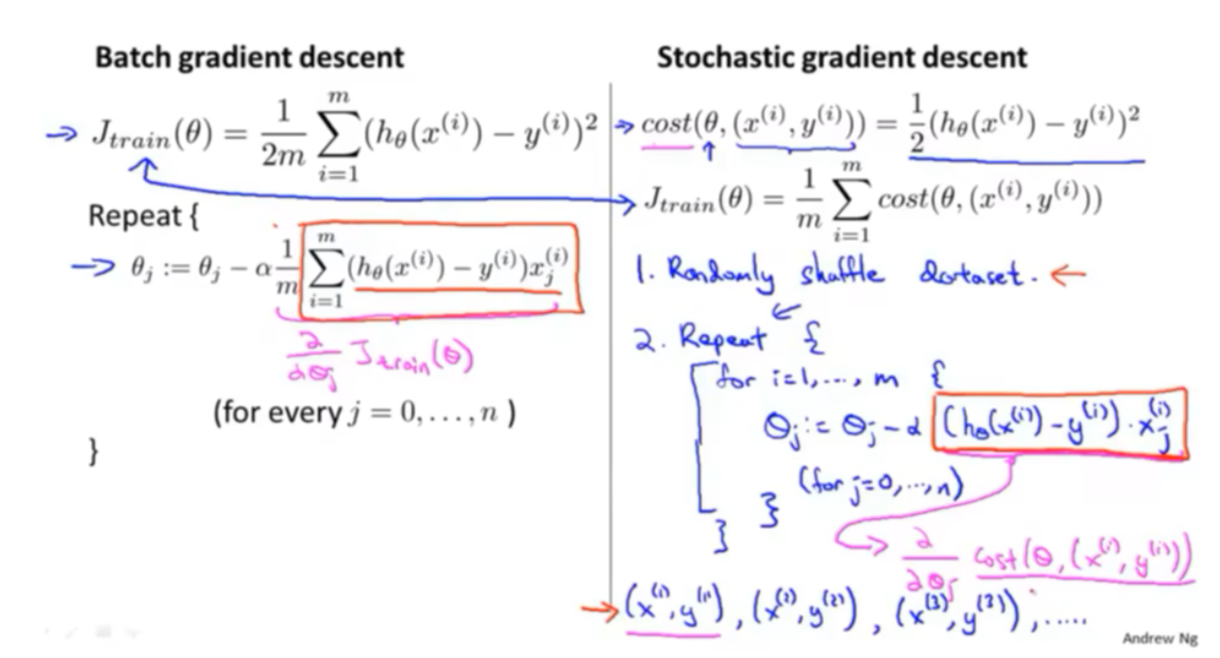 Batch gradient descent
J_train(θ) = 1/2m ∑_{i=1}^{m} (h_θ(x^(i)) − y^(i))²
Repeat {
θ_j := θ_j − α 1/m ∑_{i=1}^{m} (h_θ(x^(i)) − y^(i))x_j^(i)
∂/∂θ_j J_train(θ)
(for every j = 0, . . . , n )
}
Stochastic gradient descent
cost(θ, (x^(i), y^(i))) = 1/2 (h_θ(x^(i)) − y^(i))²
J_train(θ) = 1/m ∑_{i=1}^{m} cost(θ, (x^(i), y^(i)))
1. Randomly shuffle dataset.
2. Repeat {
for i=1,..., m {
θ_j := θ_j − α (h_θ(x^(i)) − y^(i)) · x_j^(i)
(for j=0,...,n)
}
}
∂/∂θ_j cost(θ, (x^(i), y^(i)))
(x^(1), y^(1)), (x^(2), y^(2)), (x^(3), y^(3)), .....
Andrew Ng